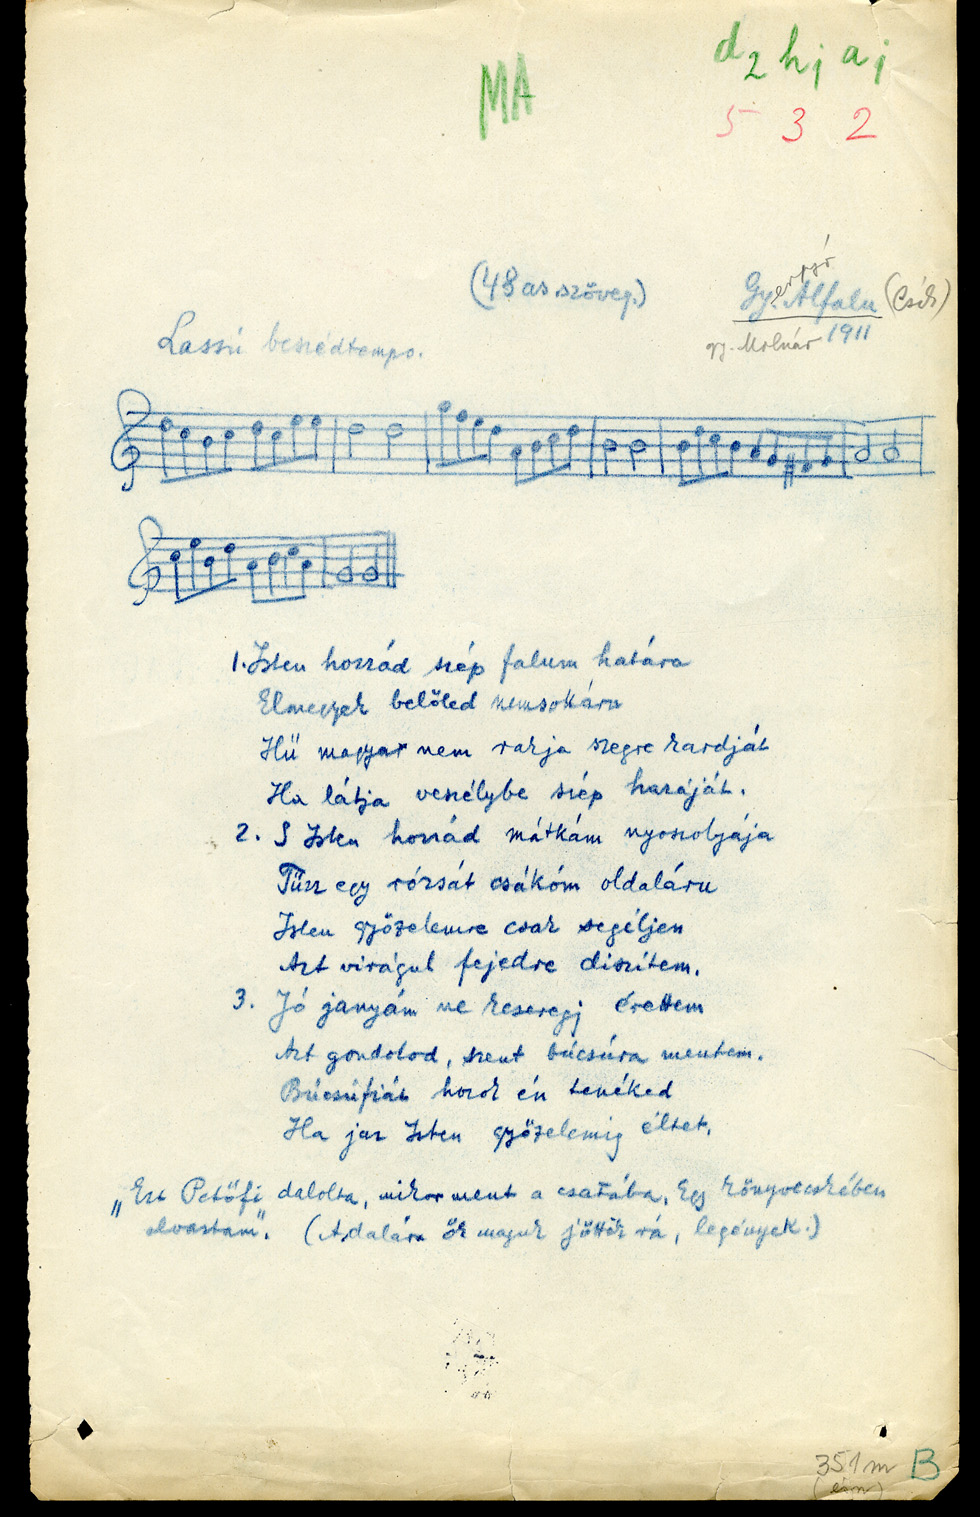 MA
d2 h1 a1
5 3 2
(48as szöveg.)
Gy. Alfalu (Csík)
ergyó
gy. Molnár 1911
Lassú beszédtempo.
1. Isten hozzád szép falum határa
Elmegyek belőled nemsokára
Hű magyar nem rakja szegre kardját
Ha látja veszélybe szép hazáját.
2. S Isten hozzád mátkám nyoszolyája
Tűzz egy rózsát csákóm oldalára
Isten győzelemre csak segéljen
Azt virágul fejedre díszítem.
3. Jó janyám ne keseregj érettem
Azt gondolod, szent búcsúra mentem.
Búcsúfiát hozok én tenéked
Ha jaz Isten győzelemig éltet.
„Ezt Petőfi dalolta, mikor ment a csatába, Egy könyvecskében
olvastam". (A dalára ők maguk jöttek rá, legények.)
351m B